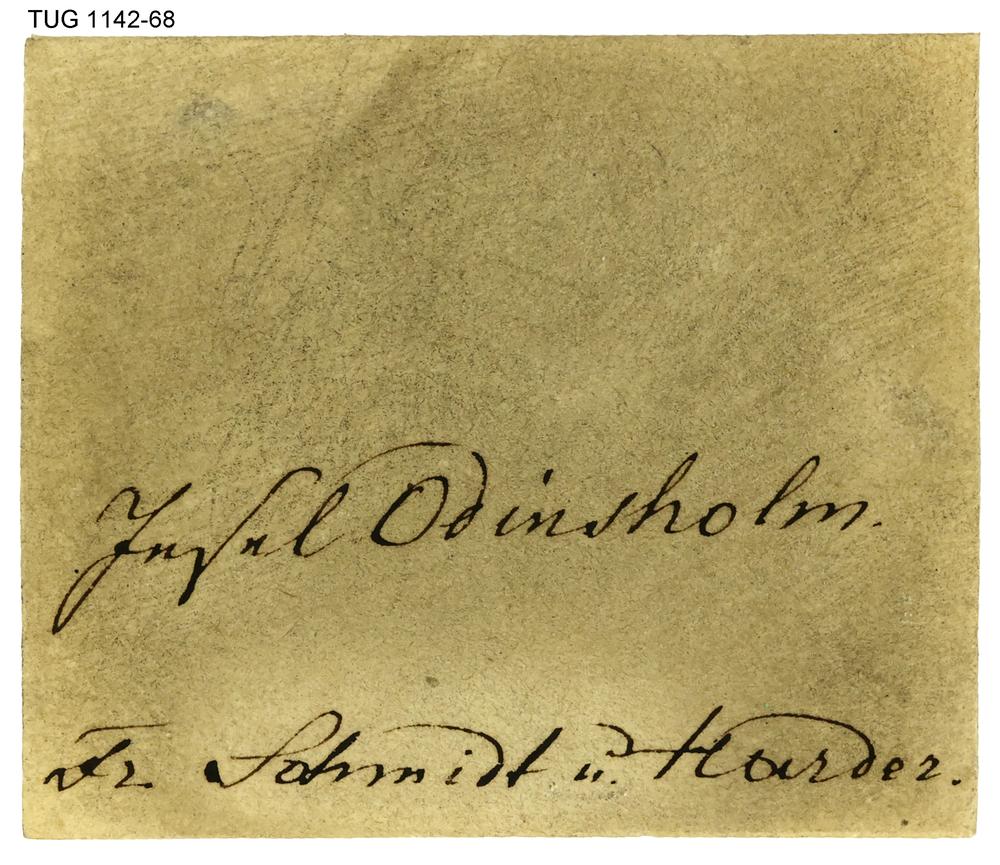 TUG 1142-68
Insel Odinsholm.
Fr. Schmidt u. Harder.